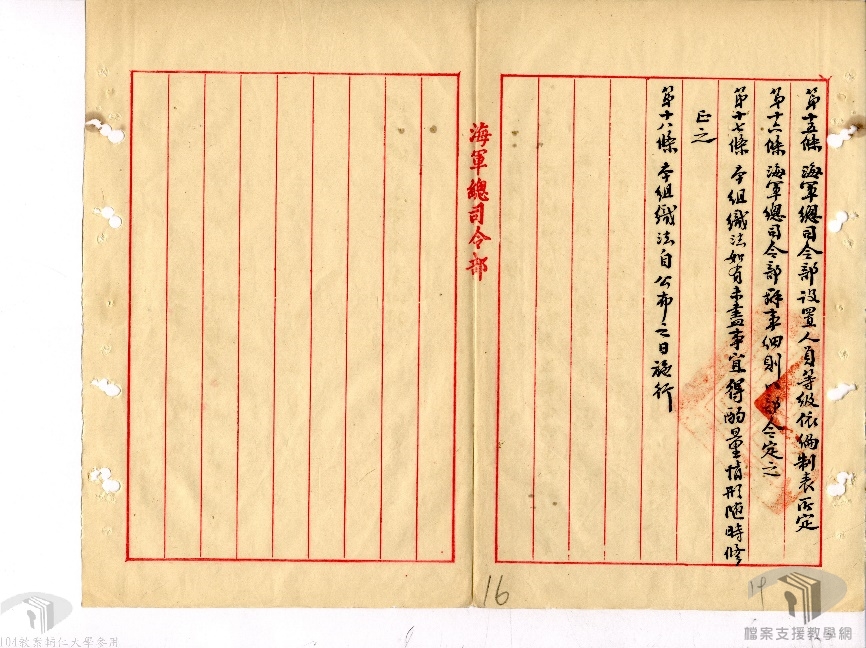 第十五條 海軍總司令部設置人員等級依編制表所定
第十六條 海軍總司令部辦事細則以部令定之
第十七條 本組織法如有未盡事宜得酌量情形隨時修
正之
第十八條 本組織法自公布之日施行
海軍總司令部
16
14
檔案支援教學網
104教案輔仁大學參用